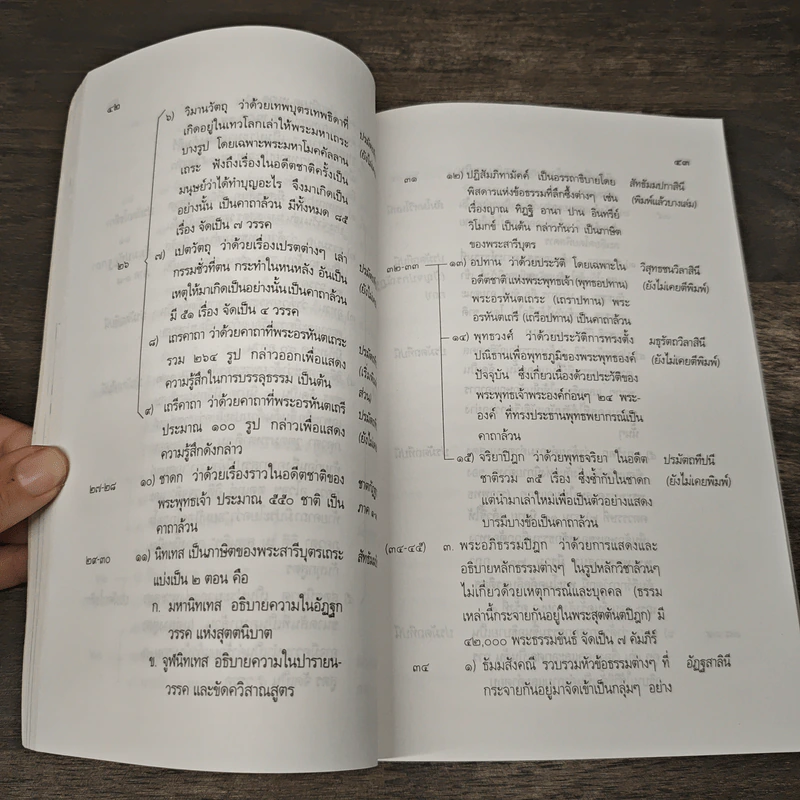 ๔๒
๖) วิมานวัตถุ ว่าด้วยเทพบุตรเทพธิดาที่
เกิดอยู่ในเทวโลกเล่าให้พระมหาเถระ
บางรูป โดยเฉพาะพระมหาโมคคัลลาน
เถระ ฟังถึงเรื่องในอดีตชาติครั้งเป็น
มนุษย์ว่าได้ทำบุญอะไร จึงมาเกิดเป็น
อย่างนั้น เป็นคาถาล้วน มีทั้งหมด ๘๕
เรื่อง จัดเป็น ๗ วรรค
๒๖
๗) เปตวัตถุ ว่าด้วยเรื่องเปรตต่างๆ เล่า
กรรมชั่วที่ตน กระทำในหนหลัง อันเป็น
เหตุให้มาเกิดเป็นอย่างนั้นเป็นคาถาล้วน
มี ๕๑ เรื่อง จัดเป็น ๔ วรรค
๘) เถรคาถา ว่าด้วยคาถาที่พระอรหันตเถระ
รวม ๒๖๔ รูป กล่าวออกเพื่อแสดง
ความรู้สึกในการบรรลุธรรม เป็นต้น
๙) เถรีคาถา ว่าด้วยคาถาที่พระอรหันตเถรี
ประมาณ ๑๐๐ รูป กล่าวเพื่อแสดง
ความรู้สึกดังกล่าว
๒๗-๒๘ ๑๐) ชาดก ว่าด้วยเรื่องราวในอดีตชาติของ
พระพุทธเจ้า ประมาณ ๕๕๐ ชาติ เป็น
คาถาล้วน
๒๙-๓๐ ๑๑) นิทเทส เป็นภาษิตของพระสารีบุตรเถระ
แบ่งเป็น ๒ ตอน คือ
ก. มหานิทเทส อธิบายความในอัฏฐก
วรรค แห่งสุตตนิบาต
ข. จูฬนิทเทส อธิบายความในปารายน-
วรรค และขัดควิสาณสูตร
๔๓
๓๑ ๑๒) ปฏิสัมภิทามัคค์ เป็นอรรถาธิบายโดย สัทธัมมปกาสินี
พิสดารแห่งข้อธรรมที่ลึกซึ้งต่างๆ เช่น (พิมพ์แล้วบางเล่ม)
เรื่องญาณ ทิฏฐิ อานา ปาน อินทรีย์
วิโมกข์ เป็นต้น กล่าวกันว่า เป็นภาษิต
ของพระสารีบุตร
๓๒-๓๓ ๑๓) อปทาน ว่าด้วยประวัติ โดยเฉพาะใน วิสุทธชนวิลาสินี
อดีตชาติ แห่งพระพุทธเจ้า (พุทธอปทาน) (ยังไม่เคยตีพิมพ์)
พระอรหันตเถระ (เถราปทาน) พระ
อรหันตเถรี (เถรีอปทาน) เป็นคาถาล้วน
๑๔) พุทธวงศ์ ว่าด้วยประวัติการทรงตั้ง มธุรัตถวิลาสินี
ปณิธานเพื่อพุทธภูมิของพระพุทธองค์ (ยังไม่เคยตีพิมพ์)
ปัจจุบัน ซึ่งเกี่ยวเนื่องด้วยประวัติของ
พระพุทธเจ้าพระองค์ก่อนๆ ๒๔ พระ-
องค์ ที่ทรงประธานพุทธพยากรณ์เป็น
คาถาล้วน
๑๕) จริยาปิฎก ว่าด้วยพุทธจริยา ในอดีต ปรมัตถทีปนี
ชาติรวม ๓๕ เรื่อง ซึ่งซ้ำกับในชาดก (ยังไม่เคยพิมพ์)
แต่นำมาเล่าใหม่เพื่อเป็นตัวอย่างแสดง
บารมีบางข้อเป็นคาถาล้วน
(๓๔-๔๕) ๓. พระอภิธรรมปิฎก ว่าด้วยการแสดงและ
อธิบายหลักธรรมต่างๆ ในรูปหลักวิชาล้วนๆ
ไม่เกี่ยวด้วยเหตุการณ์และบุคคล (ธรรม
เหล่านี้กระจายกันอยู่ในพระสุตตันตปิฎก) มี
๔๒,๐๐๐ พระธรรมขันธ์ จัดเป็น ๗ คัมภีร์
๓๔ ๑) ธัมมสังคณี รวบรวมหัวข้อธรรมต่างๆ ที่ อัฏฐสาลินี
กระจายกันอยู่มาจัดเข้าเป็นกลุ่มๆ อย่าง